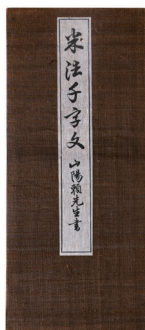 米法千字文
山陽頼先生書